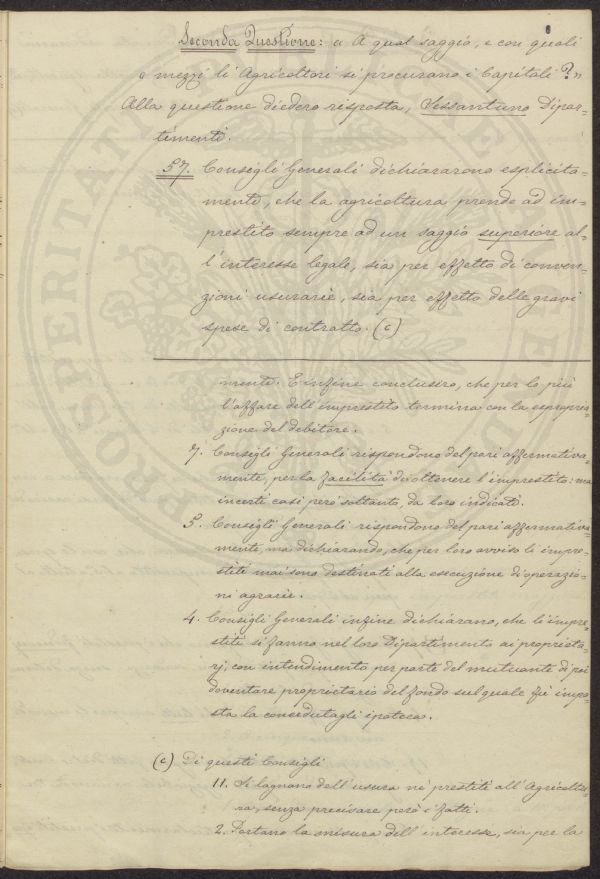 Seconda Questione: « A qual saggio, e con quali
« mezzi li Agricoltori si procurano i Capitali?»
Alla questione diedero risposta, Sessantuno Dipar-
timenti.
57. Consigli Generali dichiararono esplicita-
mente, che la agricoltura prende ad im-
prestito sempre ad un saggio superiore al-
l'interesse legale, sia per effetto di conven-
zioni usurarie, sia per effetto delle gravi
spese di contratto. (c)
mente. E infine conclusero, che per lo più
l'affare dell'imprestito termina con la espropria-
zione del debitore.
7. Consigli Generali rispondono del pari affermativa-
mente, per la facilità di ottenere l'imprestito: ma
in certi casi però soltanto, da loro indicati.
5. Consigli Generali rispondono del pari affermativa-
mente, ma dichiarando, che per loro avviso li impre-
stiti mai sono destinati alla esecuzione di operazio-
ni agrarie.
4. Consigli Generali infine dichiarano, che li impre-
stiti si fanno nel loro Dipartimento ai proprieta-
rj, con intendimento per parte del mutuante di poi
doventare proprietario del fondo sul quale fù impo-
sta la concedutagli ipoteca.
(c) Di questi Consigli
11. Si lagnano dell'usura ne' prestiti all'Agricoltu-
ra, senza precisare però i fatti.
2. Portano la misura dell'interesse, sia per la
PROSPERITAT